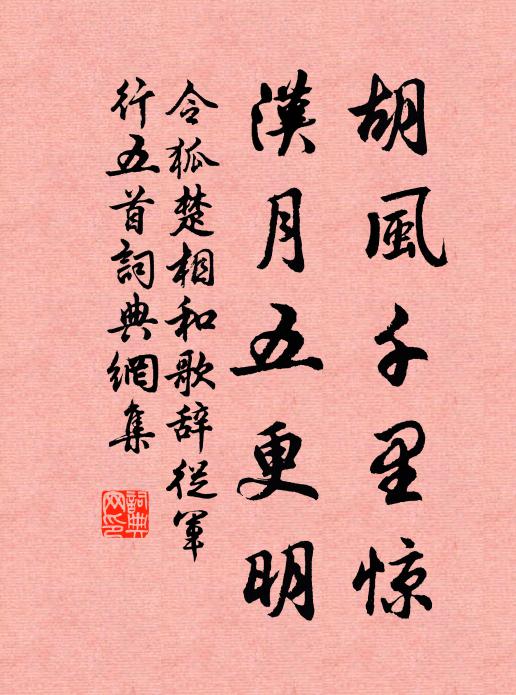 胡風千里惊
漢月五更明
令狐楚相和歌辞從軍
行五首詞典網集
詞典
网印